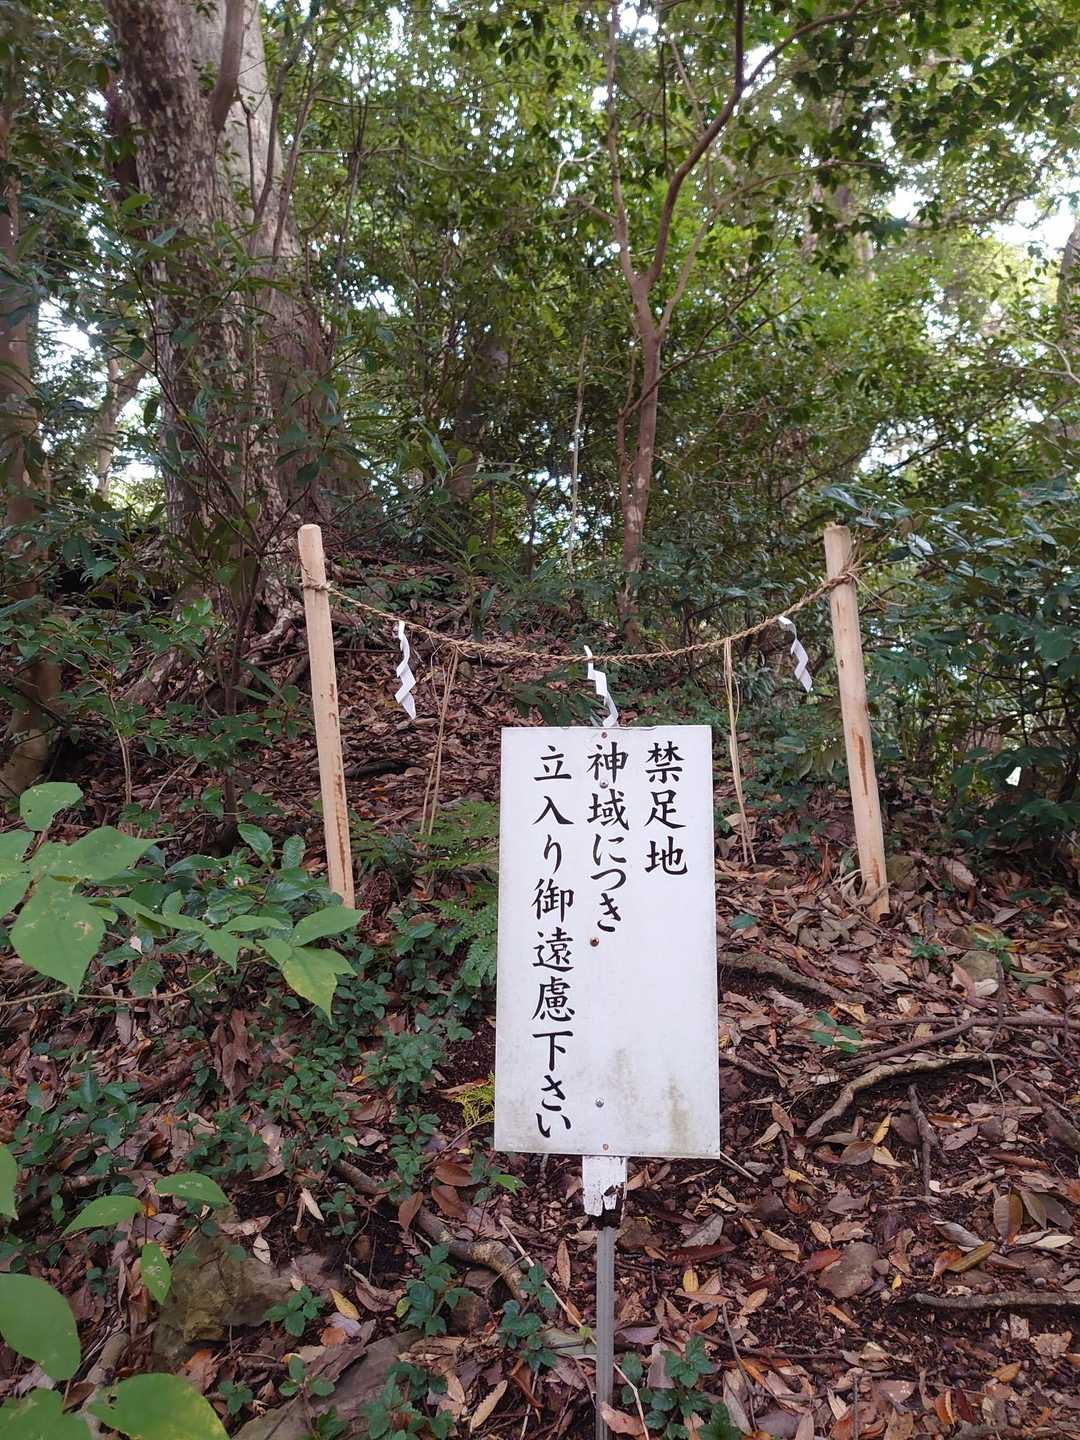 禁足地
神域につき
立入り御遠慮下さい